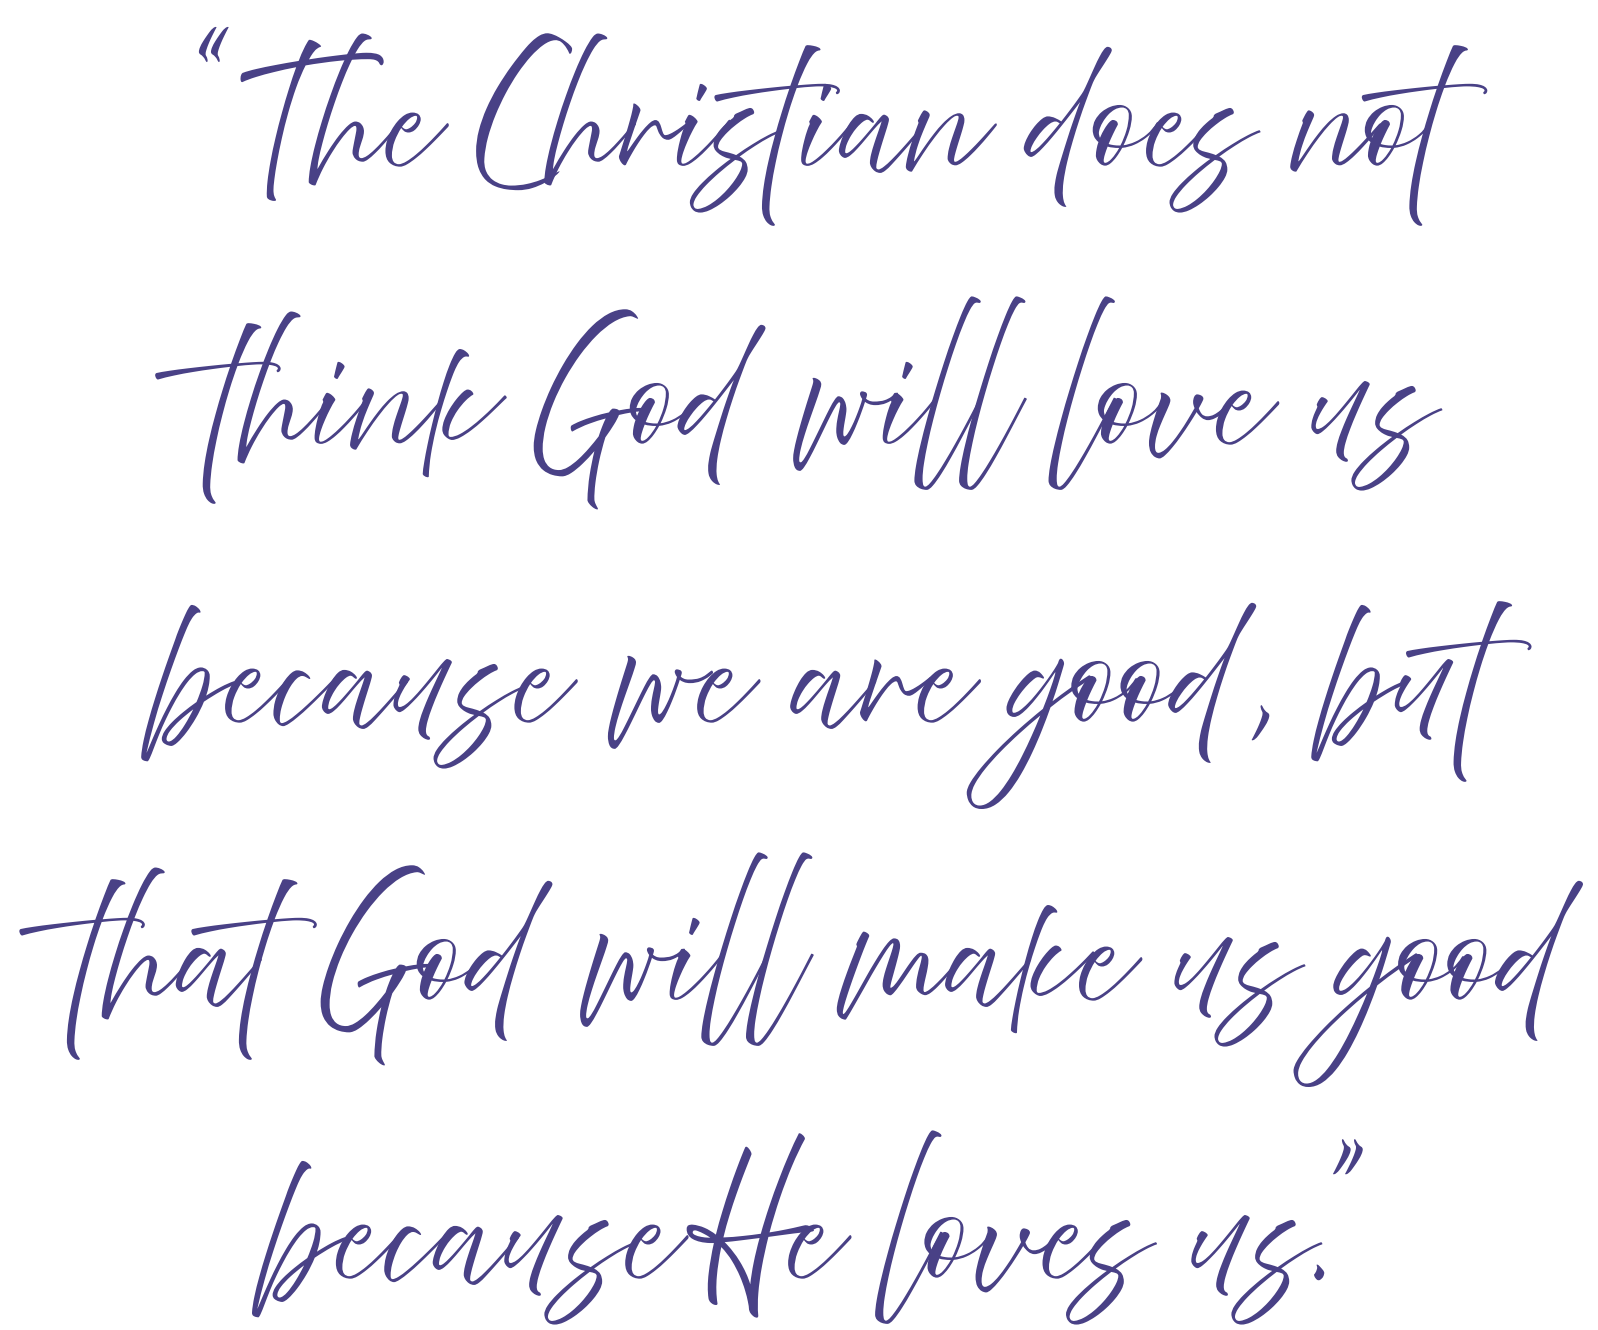 “The Christian does not
think God will love us
because we are good, but
that God will make us good
because He loves us.”